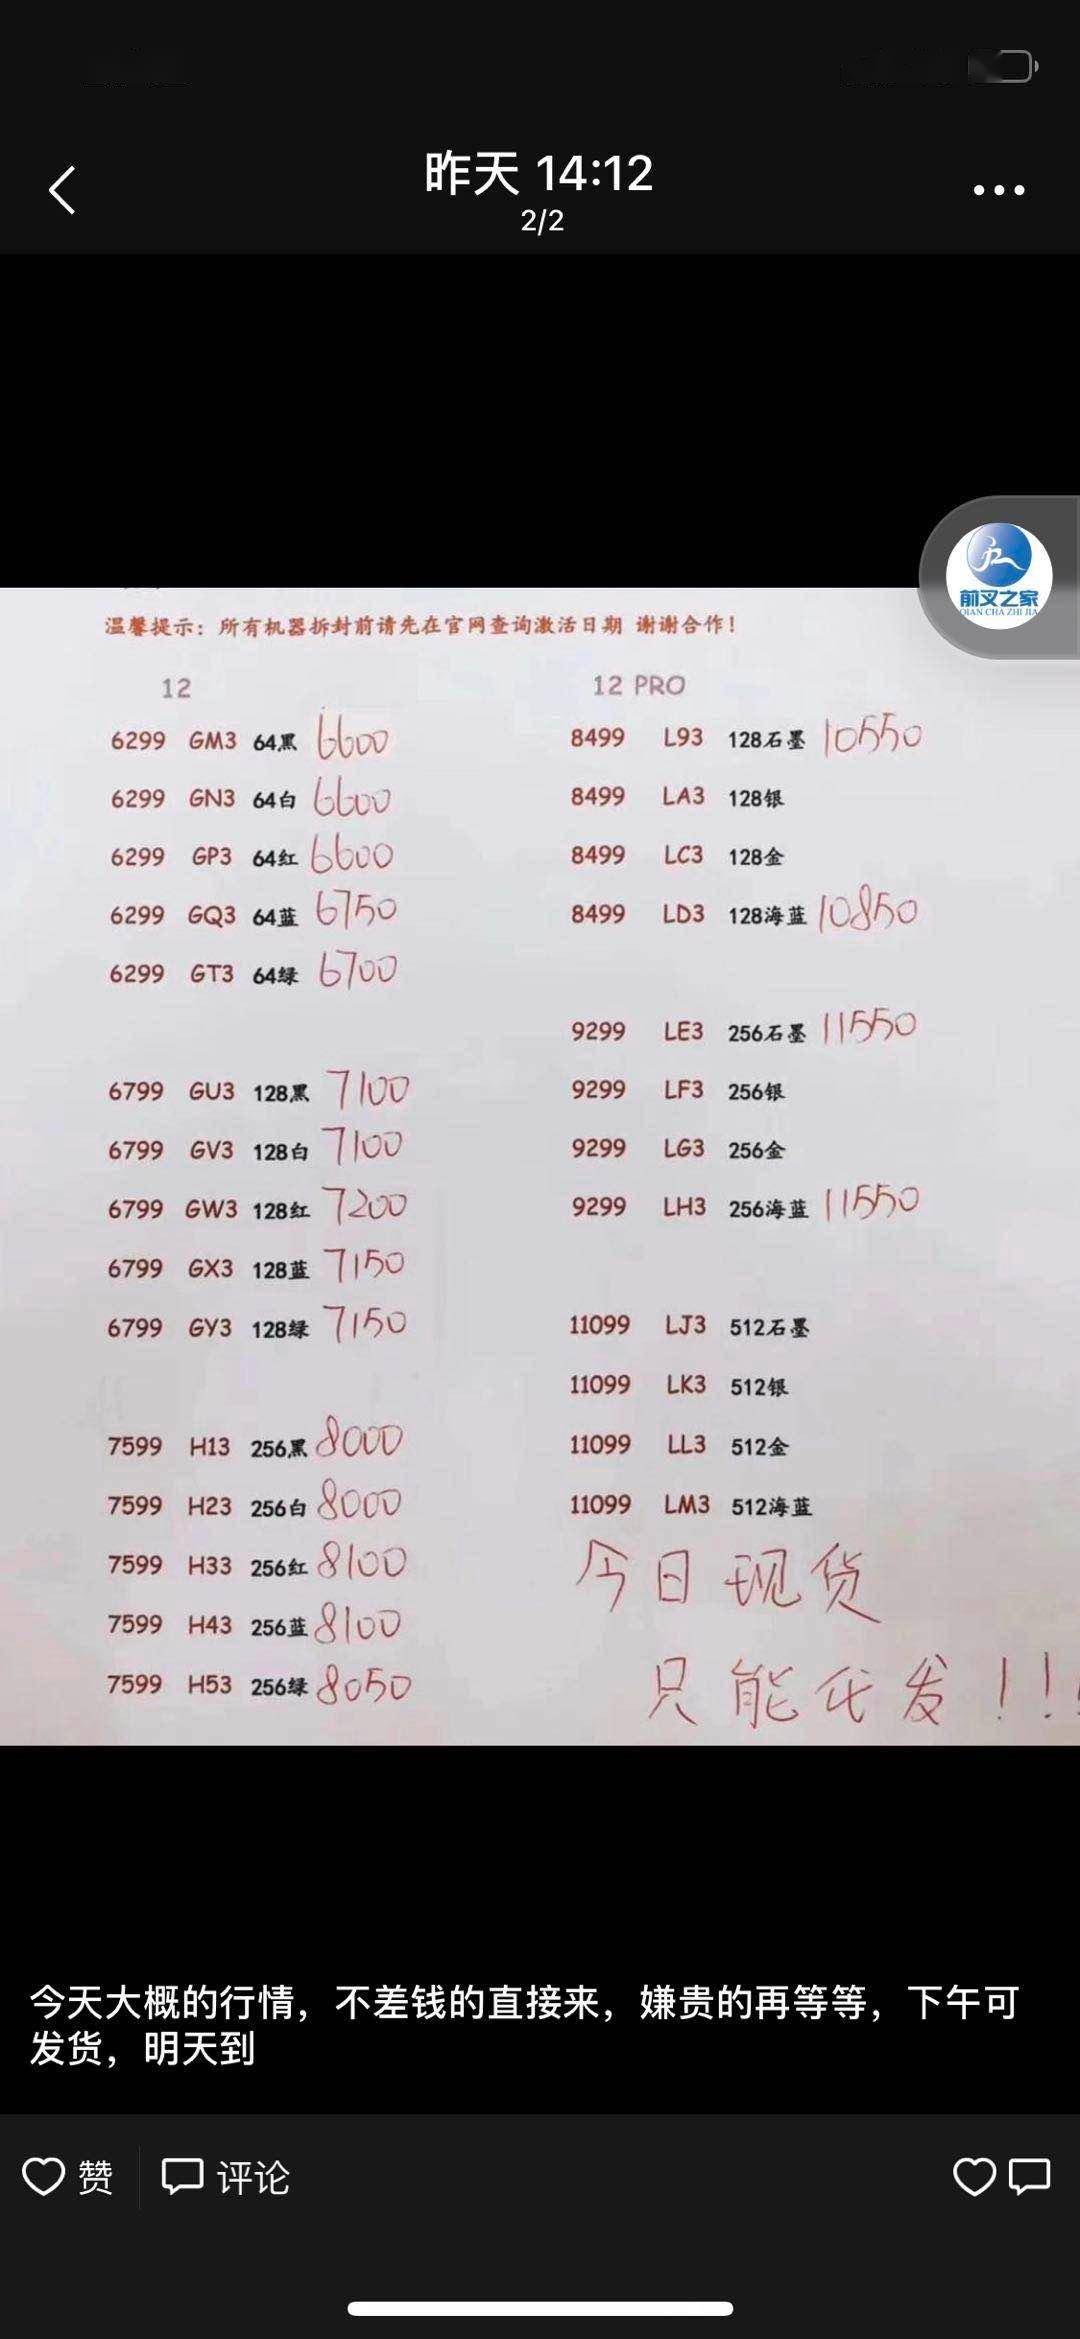 昨天 14:12
2/2
前叉之家
QIAN CHA ZHI JIA
温馨提示：所有机器拆封前请先在官网查询激活日期 谢谢合作！
12
6299 GM3 64黑 6600
6299 GN3 64白 6600
6299 GP3 64红 6600
6299 GQ3 64蓝 6750
6299 GT3 64绿 6700
6799 GU3 128黑 7100
6799 GV3 128白 7100
6799 GW3 128红 7200
6799 GX3 128蓝 7150
6799 GY3 128绿 7150
7599 H13 256黑 8000
7599 H23 256白 8000
7599 H33 256红 8100
7599 H43 256蓝 8100
7599 H53 256绿 8050
12 PRO
8499 L93 128石墨 10550
8499 LA3 128银
8499 LC3 128金
8499 LD3 128海蓝 10850
9299 LE3 256石墨 11550
9299 LF3 256银
9299 LG3 256金
9299 LH3 256海蓝 11550
11099 LJ3 512石墨
11099 LK3 512银
11099 LL3 512金
11099 LM3 512海蓝
今日现货
只能代发！！！
今天大概的行情，不差钱的直接来，嫌贵的再等等，下午可
发货，明天到
赞 评论